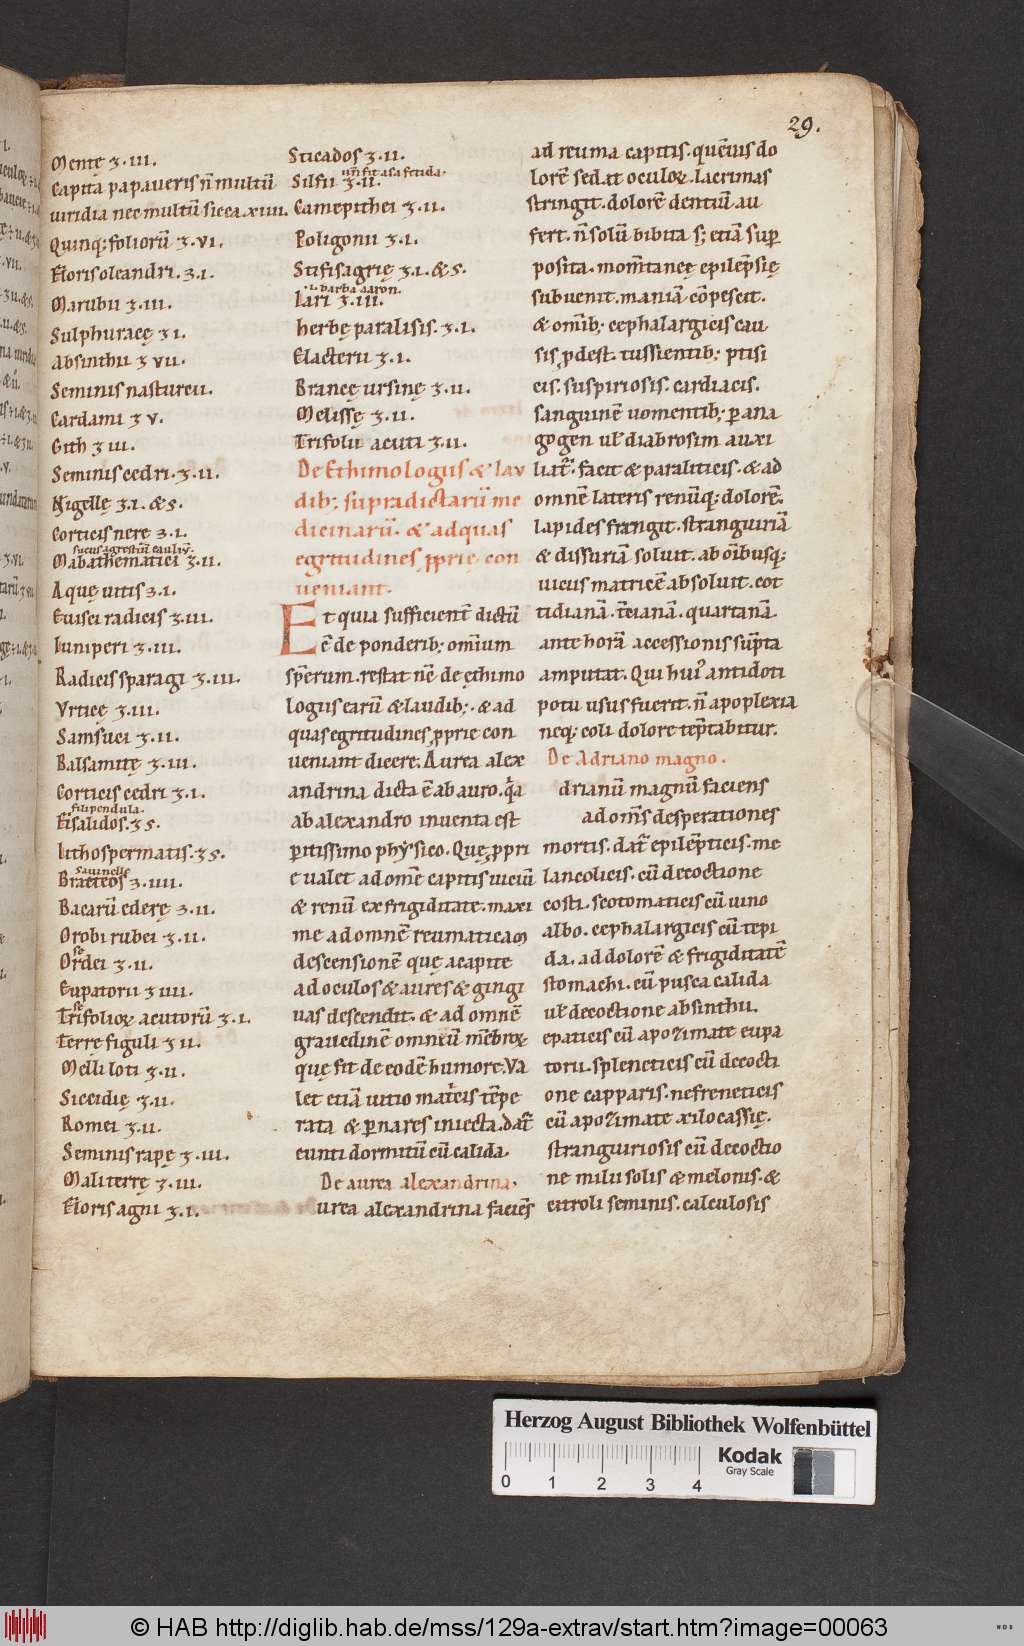 29.
Mentę ʒ.III.
Capita papaueris n̄ multū
uiridia nec multū sicca.XIIII.
Quinq; foliorū ʒ.VI.
Floris oleandri.ʒ.I.
Marubii ʒ.III.
Sulphuracę ʒ I.
Absinthii ʒ VII.
Seminis nasturcii.
Cardami ʒ V.
Gith ʒ III.
Seminis cedri.ʒ.II.
Nigellę ʒ.I. &s.
Corticis nerę ʒ.I.
sucus agrestiū cauliū.
Mabathematici ʒ.II.
Aquę uitis ʒ.I.
Euisci radicis ʒ.III.
Iuniperi ʒ.III.
Radicis sparagi ʒ.III.
Vrticę ʒ.III.
Samsuci ʒ.II.
Balsamitę ʒ.III.
Corticis cedri ʒ.I.
filipendula.
Fisalidos.ʒ s.
Lithospermatis.ʒ s.
sauinelle
Bracteos ʒ.IIII.
Bacarū ederę ʒ.II.
Orobi rubei ʒ.II.
se
Ordei ʒ.II.
Eupatorii ʒ IIII.
se
Trifolioꝝ acutorū ʒ.I.
Terrę figuli ʒ II.
Melliloti ʒ.II.
Siccidię ʒ.II.
Romei ʒ.II.
Seminis rapę ʒ.III.
Mali terrę ʒ.III.
Floris agni ʒ.I.
Sticados ʒ.II.
unde fit asa fetida.
Silfii ʒ.II.
Camepithei ʒ.II.
Poligonii ʒ.I.
Stifisagrię ʒ.I. &s.
.i. barba aaron.
Iari ʒ.III.
herbę paralisis. ʒ.I.
Elacterii ʒ.I.
Brancę ursinę ʒ.II.
Melissę ʒ.II.
Trifolii acuti ʒ.II.
De Ethimologiis & lau
dib; supradictarū me
dicinarū. & ad quas
egritudines ꝓprię con
ueniant.
Et quia sufficient̄ dictū
ē de ponderib; omium
sp̄erum.restat n̄c de ethimo
logiis earū & laudib;. & ad
quas egritudines ꝓprie con
ueniant dicere. Aurea alex
andrina dicta ē ab auro. q̄a
ab alexandro inuenta est
ꝑitissimo physico. Quę ꝓpri
e ualet ad om̄e capitis uiciū
& renū ex frigiditate. maxi
me ad omnē reumaticam
descensionē quę a capite
ad oculos & aures & gingi
uas descendit. & ad omnē
grauedinē omniū m̄ebroꝝ
quę fit de eodē humore. Va
let etiā uitio matricis t̄epe
rata & ꝑ nares iniecta. dat̄
eunti dormitū cū calida.
De aurea alexandrina.
urea alexandrina faciēs
ad reuma capitis. quēius do
lorē sedat oculoꝝ. lacrimas
stringit. dolorē dentiū au
fert. n̄ solū bibita s; etiā sup̄
posita. mom̄tanee epilēpsię
subuenit. maniā cōpescit.
& omīb; cephalargicis cau
sis ꝓdest. tussientib; ptisi
cis. suspiriosis. cardiacis.
sanguinē uomentib; ꝑ ana
gogen uł diabrosim auxi
liat̄. facit & paraliticis. & ad
omnē lateris renūq; dolorē.
lapides frangit. stranguiriā
& dissuriā soluit. ab oībusq;
uicus matricē absoluit. cot
tidianā. t̄cianā. quartanā.
ante horā accessionis sūpta
amputat. Qui hui᾽ antidoti
potu usus fuerit. n̄ apoplexia
neq; coli dolore tēptabitur.
De Adriano magno.
drianū magnū faciens
ad om̄s desperationes
mortis. dat̄ epilēpticis. me
lancolicis. cū decoctione
costi. scotomaticis cū uino
albo. cephalargicis cū tepi
da. ad dolorē & frigiditatē
stomachi. cū pusca calida
uł decoctione absinthii.
epaticis cū apozimate eupa
torii. spleneticis cū decocti
one capparis. nefreneticis
cū apozimate xilocassię.
stranguiriosis cū decoctio
ne milii solis & melonis. &
citroli seminis. calculosis
Herzog August Bibliothek Wolfenbüttel
Kodak
Gray Scale
0 1 2 3 4
© HAB http://diglib.hab.de/mss/129a-extrav/start.htm?image=00063